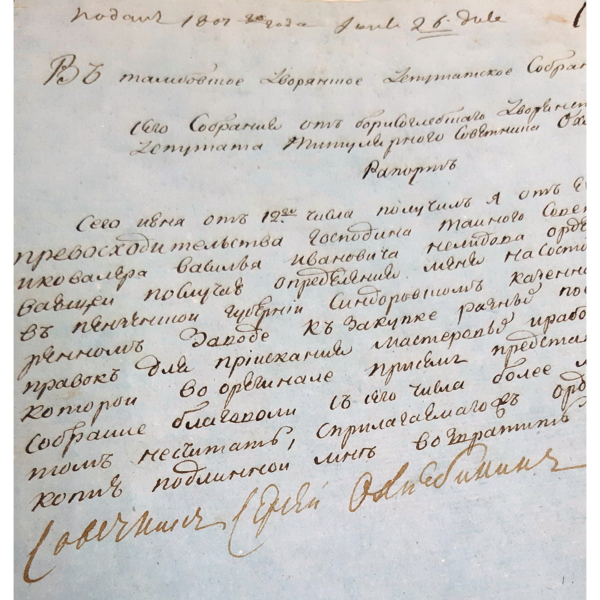 Подано 1801 го года Іюня 26 дня
Въ тамбовское дворянское депутатское Собран
сего Собрания отъ борисоглебского дворянс
депутата титулярного советника Охл
Рапортъ
Сего июня отъ 12го числа получилъ я отъ Е
превосходительства господина тайного Совет
икавалера василья ивановича нелидова орде
вашей послучая определения меня насосто
въ пензенской губернии Синдоровскомъ казенно
ренномъ Заводе къ Закупке разные по
правок для приискания мастеровыя и рабо
которой во оригинале присемъ предста
Собрание благоволи съ сего числа более
томъ несчитать, сприлагаемаго орд
копие подлинной мне возвратить
Советникъ Сергей Охлебининъ